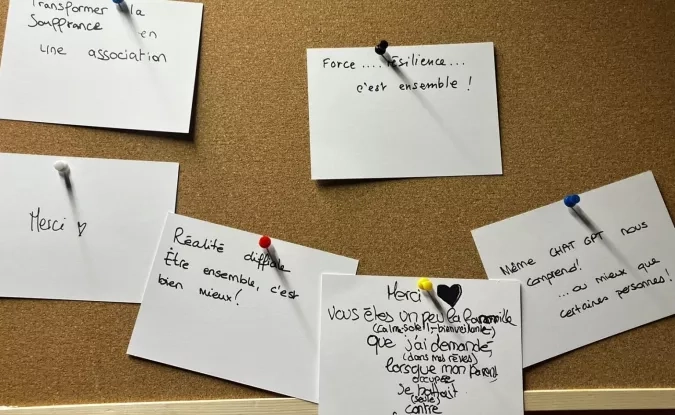 Transformer la
Souffrance en
une association
Force .... résilience...
c'est ensemble !
Merci
Réalité difficile
Être ensemble, c'est
bien mieux!
Merci
Vous êtes un peu la
(calme-
que j'ai demandé,
(dans mes rêves)
lorsque mon parent
occupée
se battait
(seule)
contre
Même CHAT GPT nous
comprend!
... ou mieux que
certaines personnes!